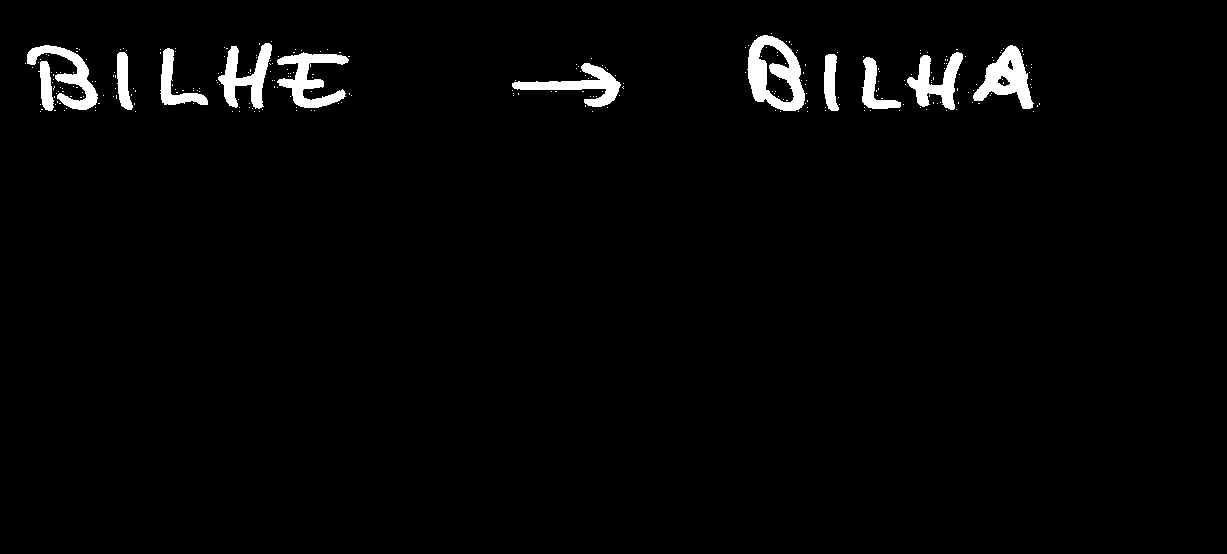 BILHE → BILHA